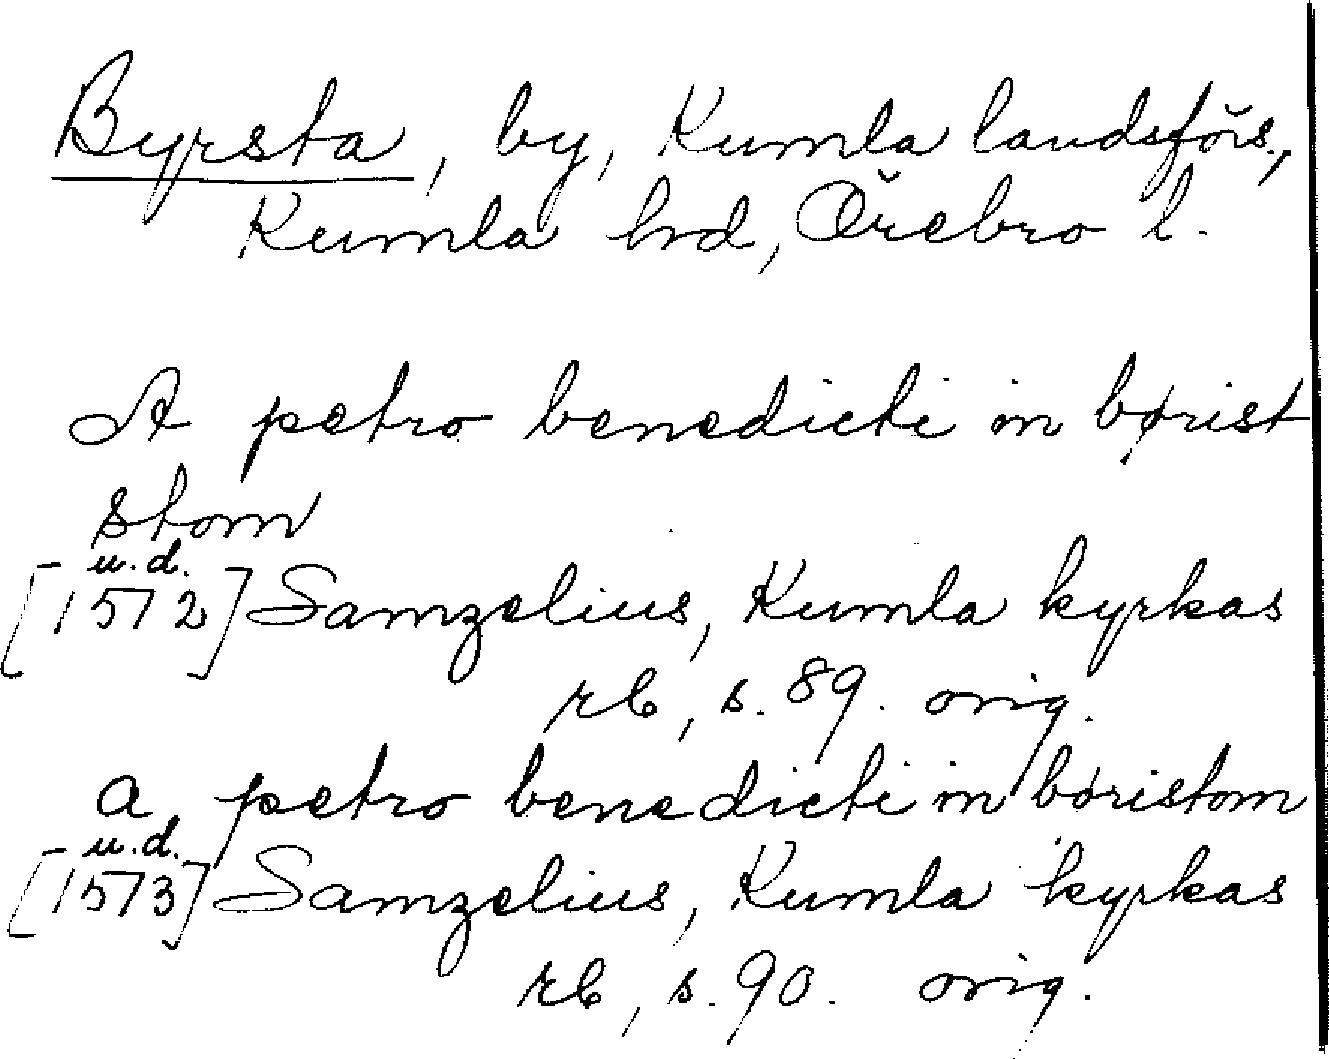 Byrsta, by, Kumla landsförs.,
Kumla hrd, Örebro l.
A petro benedicti in børist
stom
u.d.
[1572] Samzelius, Kumla kyrkas
rb, s. 89. orig.
a petro benedicti in børistom
u.d.
[1573] Samzelius, Kumla kyrkas
rb, s. 90. orig.